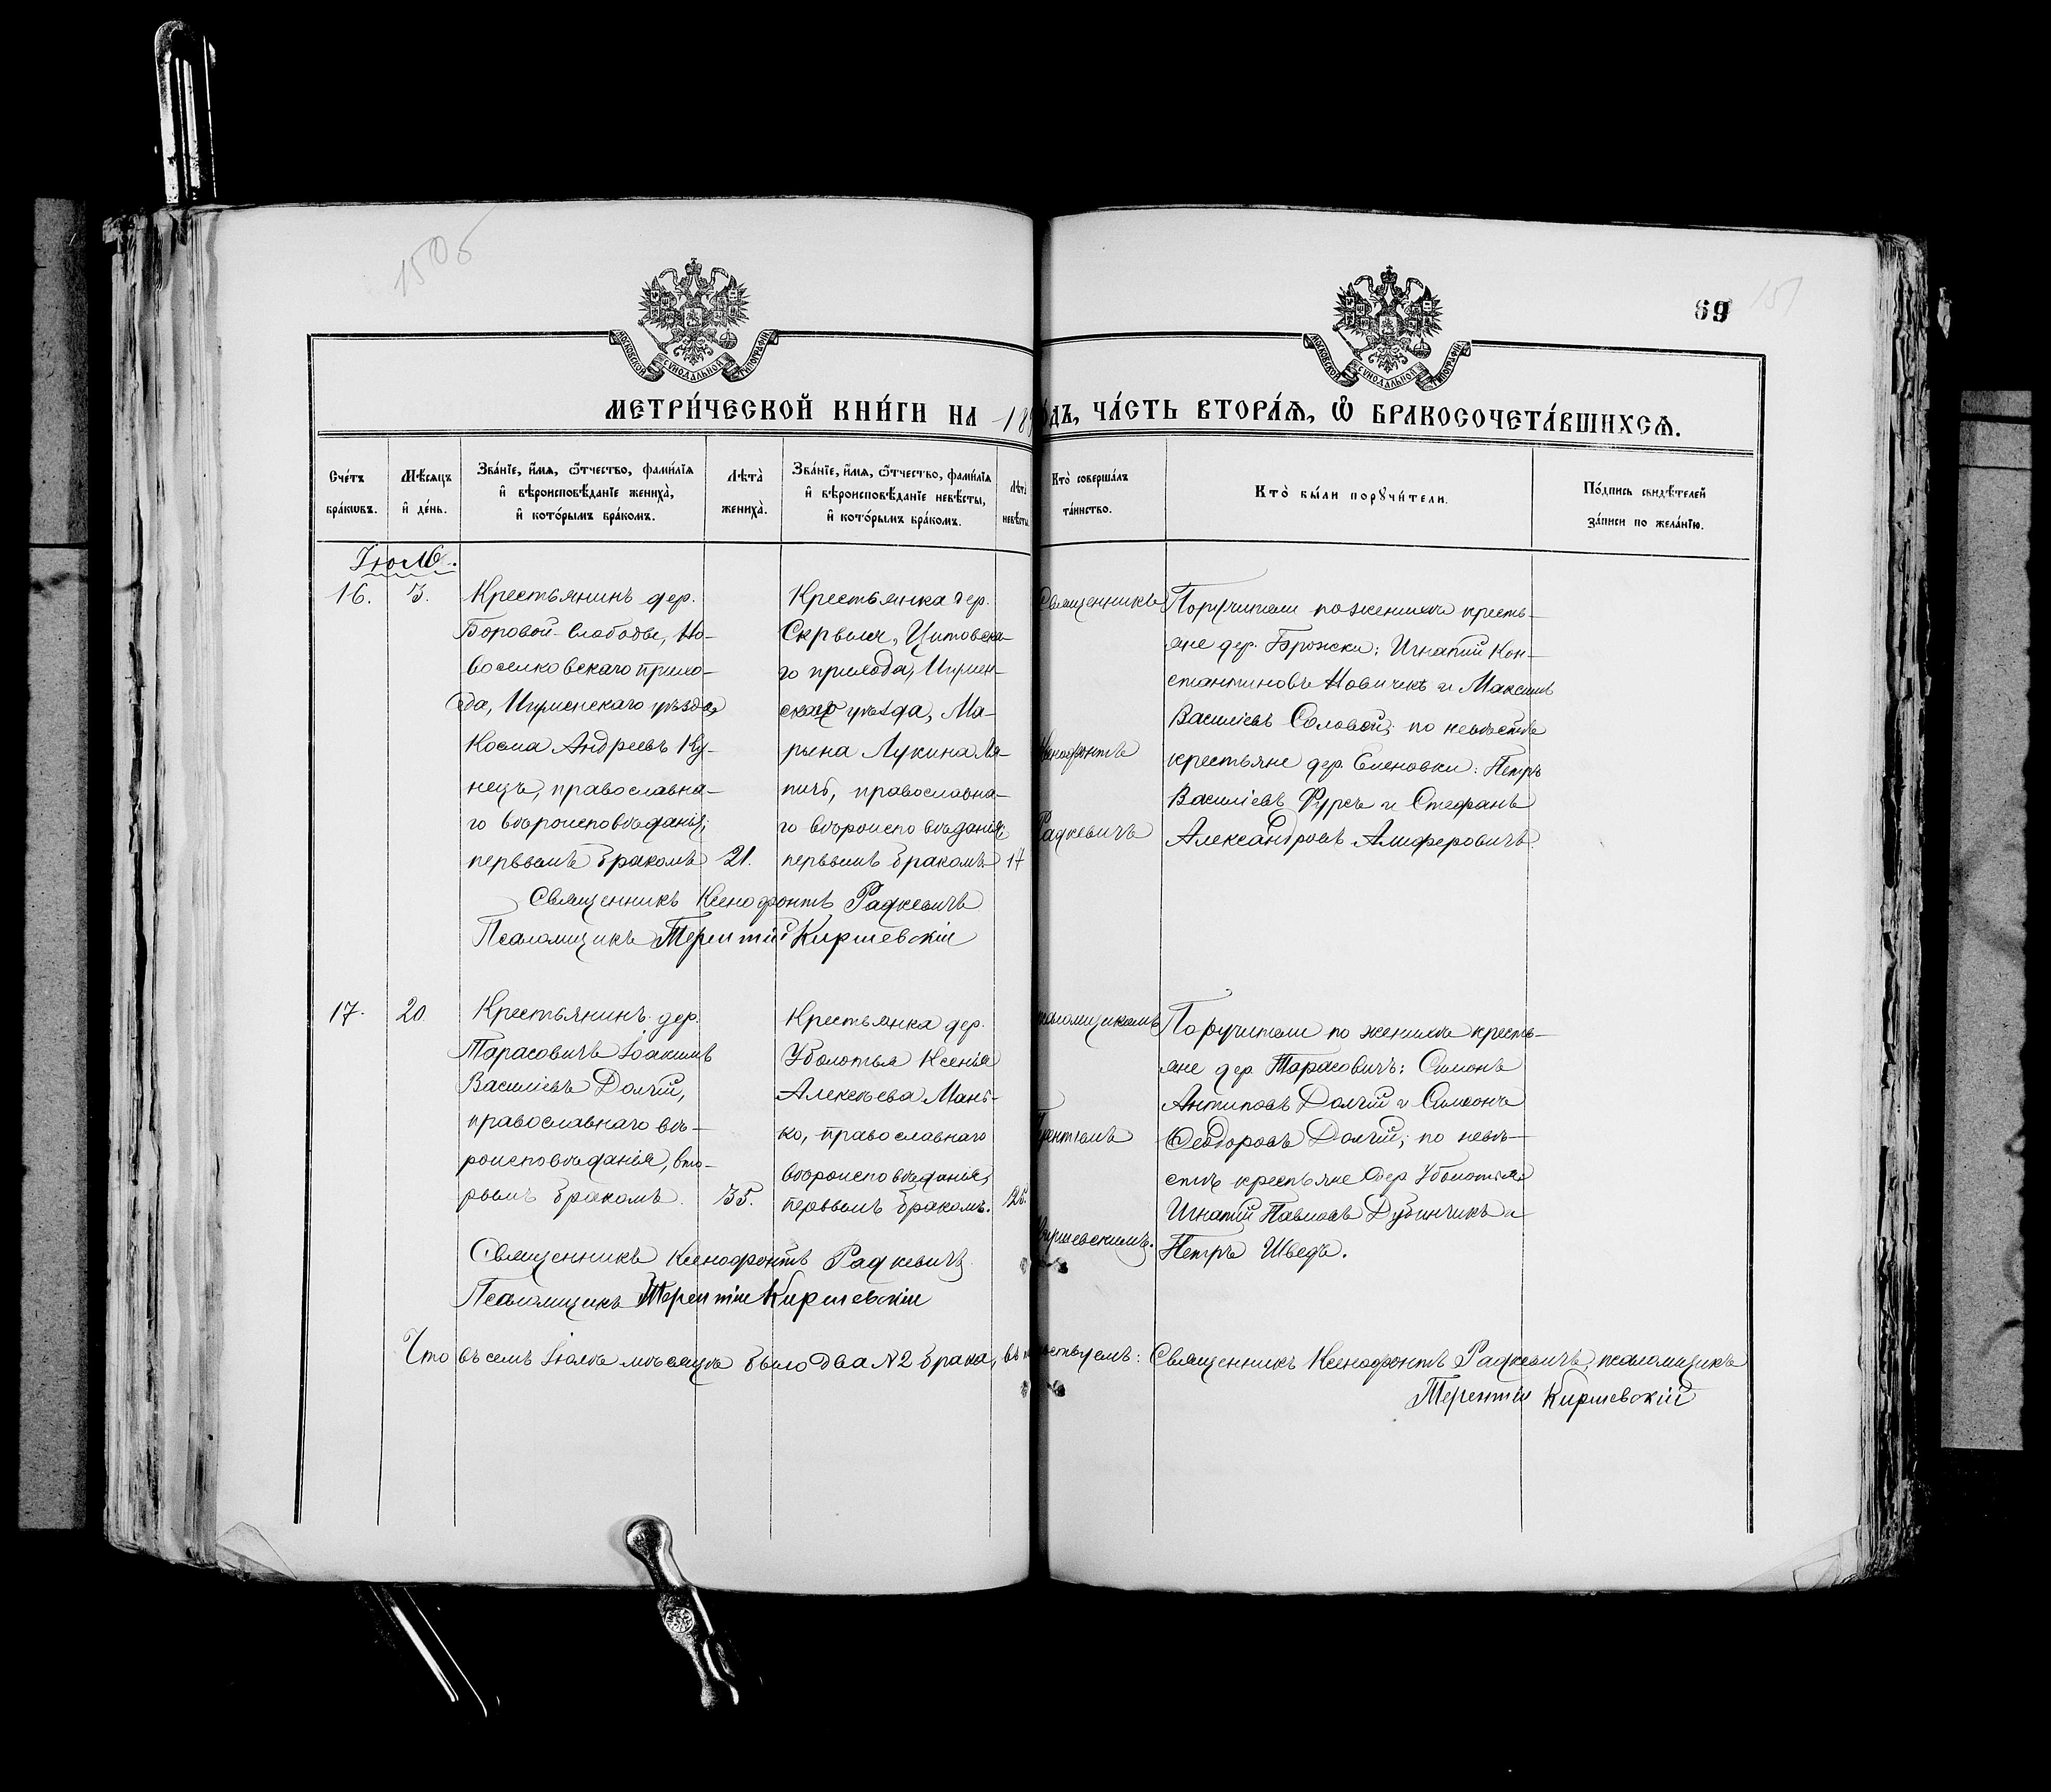 150б
69
151
МОСКОВСКОЙ СѴНОДАЛЬНОЙ ТИПОГРАФІИ
МОСКОВСКОЙ СѴНОДАЛЬНОЙ ТИПОГРАФІИ
МЕТРИ́ЧЕСКОЙ КНИ́ГИ НА 189
ОДЪ, ЧА́СТЬ ВТОРА́Ѧ, Ѽ БРАКОСОЧЕТА́ВШИХСѦ.
Сче́тъ бра́кѡвъ.
Мѣ́сѧцъ и҆ де́нь.
Зва́нїе, и҆́мѧ, ѻ҆́тчество, фами́лїѧ
и҆ вѣроисповѣ́данїе жениха̀,
и҆ кото́рымъ бра́комъ.
Лѣта̀ жениха̀.
Зва́нїе, и҆́мѧ, ѻ҆́тчество, фами́лїѧ
и҆ вѣроисповѣ́данїе невѣ́сты,
и҆ кото́рымъ бра́комъ.
Лѣта̀ невѣ́сты.
Кто̀ соверша́лъ
та́инство.
Кто̀ бы́ли порꙋчи́тели.
По́дпись свидѣ́телей
за́писи по жела́нїю.
Іюль.
16.
3.
Крестьянинъ дер.
Боровой-Слободы, Но-
воселковскаго прихо-
да, Игуменскаго уѣзда,
Косма Андреевъ Ку-
нецъ, православна-
го вѣроисповѣданія;
первымъ бракомъ
21.
Крестьянка дер.
Цитовска-
го прихода, Игумен-
скаго уѣзда, Ма-
рына Лукина Ля-
пичъ, православна-
го вѣроисповѣданія;
первымъ бракомъ
17
Священникъ
Ксенофонтъ
Радкевичъ
Поручители по женихѣ кресть-
яне дер. Брожки: Игнатій Кон-
стантиновъ Новичекъ и Максимъ
Василіевъ Соловей; по невѣстѣ
крестьяне дер. Еленовки: Петръ
Василіевъ Фурсъ и Стефанъ
Александровъ Алиферовичъ.
Священникъ Ксенофонтъ Радкевичъ
Псаломщикъ Терентій Киршевскій
17.
20
Крестьянинъ дер.
Тарасовичъ Іоакимъ
Василіевъ Долгій,
православнаго вѣ-
роисповѣданія, вто-
рымъ бракомъ.
35.
Крестьянка дер.
Уболотья Ксенія
Алексѣева Мань-
ко, православнаго
вѣроисповѣданія,
первымъ бракомъ.
псаломщикомъ
Терентіемъ
Киршевскимъ.
Поручители по женихѣ кресть-
яне дер. Тарасовичъ: Симонъ
Антиповъ Долгій и Симеонъ
Ѳеодоровъ Долгій; по невѣ-
стѣ крестьяне дер. Уболотья:
Игнатій Павловъ Дубинчикъ и
Петръ Шведъ.
Священникъ Ксенофонтъ Радкевичъ
Псаломщикъ Терентій Киршевскій
Что въ семъ Іюлѣ мѣсяцѣ было два №2 брака, въ томъ свидѣтельствуемъ: Священникъ Ксенофонтъ Радкевичъ, псаломщикъ
Терентій Киршевскій